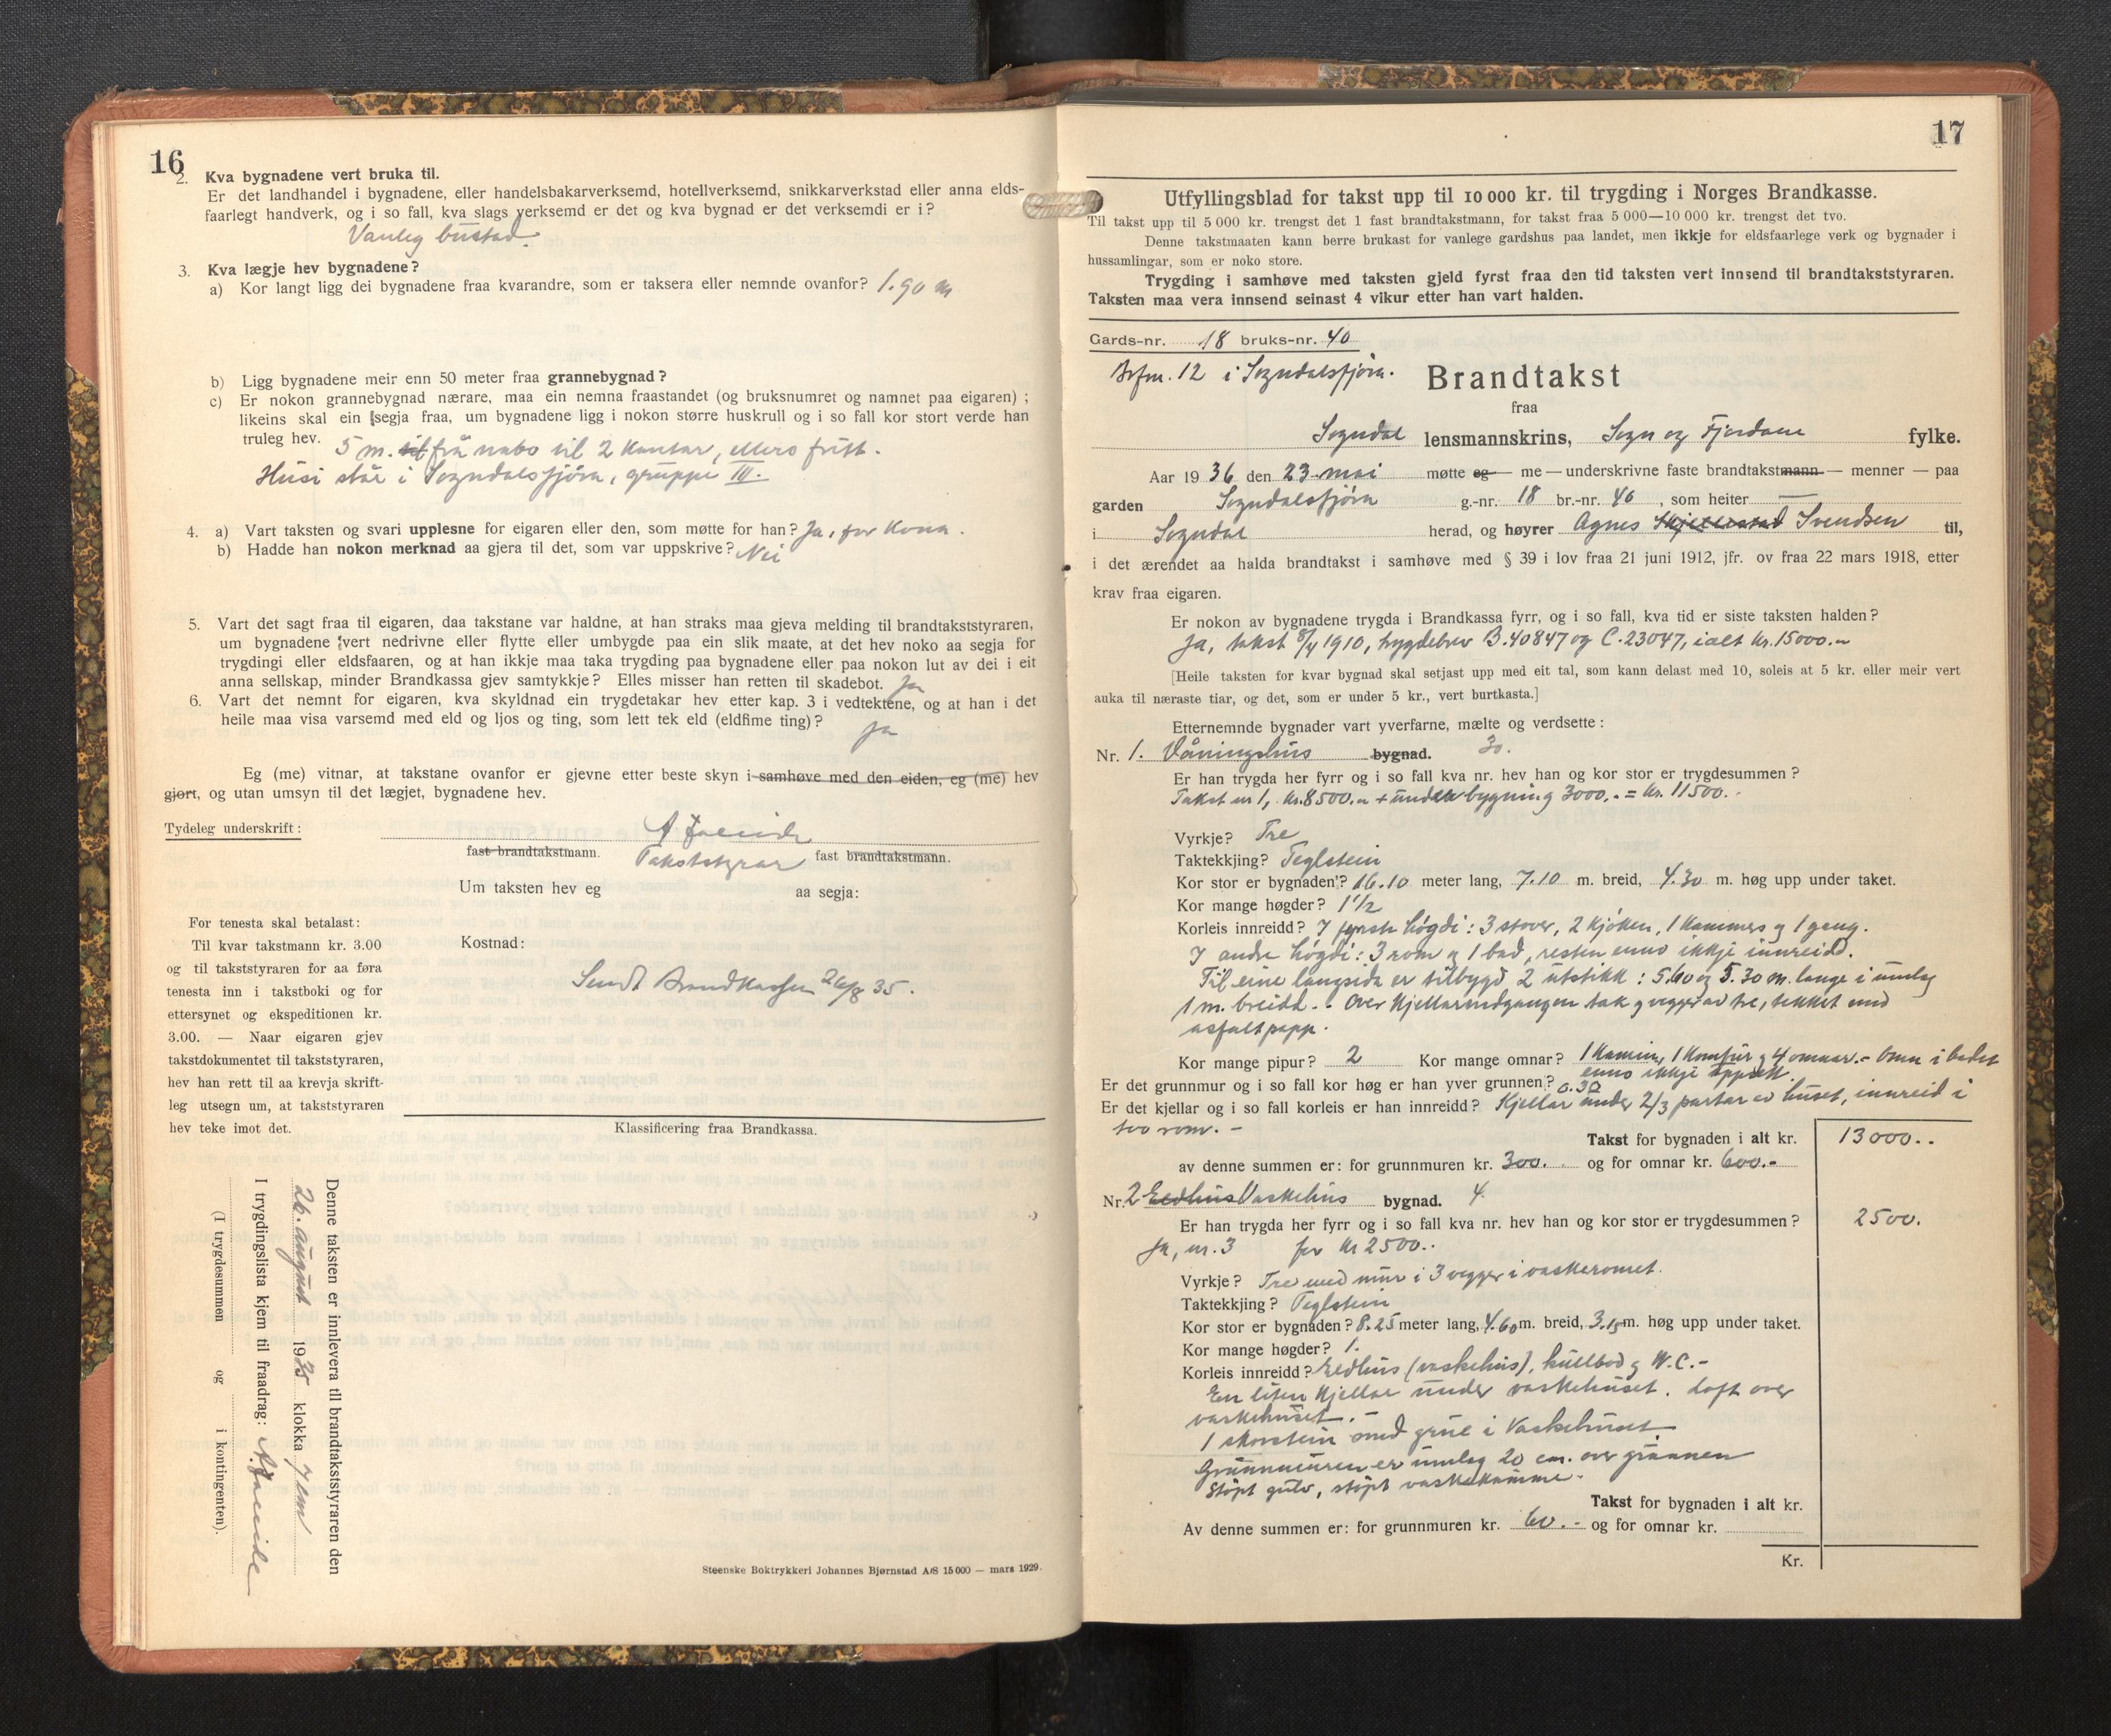 16
2. Kva bygnadene vert bruka til.
Er det landhandel i bygnadene, eller handelsbakarverksemd, hotellverksemd, snikkarverkstad eller anna elds-
faarlegt handverk, og i so fall, kva slags verksemd er det og kva bygnad er det verksemdi er i?
Vanleg bustad.
3. Kva lægje hev bygnadene?
a) Kor langt ligg dei bygnadene fraa kvarandre, som er taksera eller nemnde ovanfor? 1.90 m
b) Ligg bygnadene meir enn 50 meter fraa grannebygnad?
c) Er nokon grannebygnad nærare, maa ein nemna fraastandet (og bruksnumret og namnet paa eigaren) ;
likeins skal ein segja fraa, um bygnadene ligg i nokon større huskrull og i so fall kor stort verde han
truleg hev.
5 m. til frå nabo til 2 kantar, ellers fritt.
Husi står i Sogndalsfjøra, gruppe III.
4. a) Vart taksten og svari upplesne for eigaren eller den, som møtte for han? Ja, for kona.
b) Hadde han nokon merknad aa gjera til det, som var uppskrive? Nei
5. Vart det sagt fraa til eigaren, daa takstane var haldne, at han straks maa gjeva melding til brandtakststyraren,
um bygnadene vert nedrivne eller flytte eller umbygde paa ein slik maate, at det hev noko aa segja for
trygdingi eller eldsfaaren, og at han ikkje maa taka trygding paa bygnadene eller paa nokon lut av dei i eit
anna sellskap, minder Brandkassa gjev samtykkje? Elles misser han retten til skadebot. Ja
6. Vart det nemnt for eigaren, kva skyldnad ein trygdetakar hev etter kap. 3 i vedtektene, og at han i det
heile maa visa varsemd med eld og ljos og ting, som lett tek eld (eldfime ting)? Ja
Eg (me) vitnar, at takstane ovanfor er gjevne etter beste skyn i samhøve med den eiden, eg (me) hev
gjort, og utan umsyn til det lægjet, bygnadene hev.
Tydeleg underskrift:
fast brandtakstmann. Takststyrar fast brandtakstmann.
Um taksten hev eg aa segja:
For tenesta skal betalast:
Til kvar takstmann kr. 3.00
og til takststyraren for aa føra
tenesta inn i takstboki og for
ettersynet og ekspeditionen kr.
3.00. — Naar eigaren gjev
takstdokumentet til takststyraren,
hev han rett til aa krevja skrift-
leg utsegn um, at takststyraren
hev teke imot det.
Kostnad:
Sendt Brandkassen 26/8 35.
Klassificering fraa Brandkassa.
Denne taksten er innlevera til brandtakststyraren den
26. august 1935 klokka 7 em
I trygdingslista kjem til fraadrag:
(I trygdesummen og i kontingenten).
Steenske Boktrykkeri Johannes Bjørnstad A/S 15 000 — mars 1929.
17
Utfyllingsblad for takst upp til 10 000 kr. til trygding i Norges Brandkasse.
Til takst upp til 5 000 kr. trengst det 1 fast brandtakstmann, for takst fraa 5 000—10 000 kr. trengst det tvo.
Denne takstmaaten kann berre brukast for vanlege gardshus paa landet, men ikkje for eldsfaarlege verk og bygnader i
hussamlingar, som er noko store.
Trygding i samhøve med taksten gjeld fyrst fraa den tid taksten vert innsend til brandtakststyraren.
Taksten maa vera innsend seinast 4 vikur etter han vart halden.
Gards-nr. 18 bruks-nr. 40
12 i Sogndalsfjøra.
Brandtakst
fraa
Sogndal lensmannskrins, Sogn og Fjordane fylke.
Aar 1936 den 23. mai møtte eg — me — underskrivne faste brandtakstmann — menner — paa
garden Sogndalsfjøra g.-nr. 18 br.-nr. 40, som heiter —
i Sogndal herad, og høyrer Agnes Skjellestad Svendsen til,
i det ærendet aa halda brandtakst i samhøve med § 39 i lov fraa 21 juni 1912, jfr. ov fraa 22 mars 1918, etter
krav fraa eigaren.
Er nokon av bygnadene trygda i Brandkassa fyrr, og i so fall, kva tid er siste taksten halden?
Ja, takst 8/4 1910, trygdebrev B.40847 og C.23047, ialt kr. 15000.-
[Heile taksten for kvar bygnad skal setjast upp med eit tal, som kann delast med 10, soleis at 5 kr. eller meir vert
auka til næraste tiar, og det, som er under 5 kr., vert burtkasta.]
Etternemnde bygnader vart yverfarne, mælte og verdsette :
Nr. 1. Våningshus bygnad. 30.
Er han trygda her fyrr og i so fall kva nr. hev han og kor stor er trygdesummen?
Takst nr 1, kr. 8500.- + underbygning 3000.- = kr. 11500.-
Vyrkje? Tre
Taktekkjing? Teglstein
Kor stor er bygnaden? 16.10 meter lang, 7.10 m. breid, 4.30 m. høg upp under taket.
Kor mange høgder? 1 1/2
Korleis innreidd? I fyrste høgdi: 3 stover, 2 kjøken, 1 kammers og 1 gang.
I andre høgdi: 3 rom og 1 bad, resten enno ikkje innreidd.
Til eine langsida er tilbygd 2 utstikk : 5.60 og 5.30 m. lange i umlag
1 m. breidd. - Over kjellarnedgangen tak og vegger av tre, tekket med
asfaltpapp.
Kor mange pipur? 2 Kor mange omnar? 1 kamin, 1 komfur og 4 omnar. - Omn i badet
enno ikkje uppsett.
Er det grunnmur og i so fall kor høg er han yver grunnen? 0.30
Er det kjellar og i so fall korleis er han innreidd? Kjellar under 2/3 partar av huset, innreid i
två rom. -
Takst for bygnaden i alt kr. 13000..
av denne summen er: for grunnmuren kr. 300. og for omnar kr. 600.-
Nr. 2 Eldhus Vaskehus bygnad. 4.
Er han trygda her fyrr og i so fall kva nr. hev han og kor stor er trygdesummen? 2500.
Ja, nr. 3 for kr 2500..
Vyrkje? Tre med mur i 3 vegger i vaskeromet.
Taktekkjing? Teglstein
Kor stor er bygnaden? 8.25 meter lang, 4.60 m. breid, 3.15 m. høg upp under taket.
Kor mange høgder? 1.
Korleis innreidd? Eldhus (vaskehus), kullbod og W.C.-
En liten kjellar under vaskehuset. Loft over
vaskehuset. -
1 skorstein med grue i vaskehuset
Grunnmuren er umlag 20 cm. over grunnen
Støpt gulv, støpt vaskekumme.
Takst for bygnaden i alt kr.
Av denne summen er: for grunnmuren kr. 60.- og for omnar kr.
Kr.